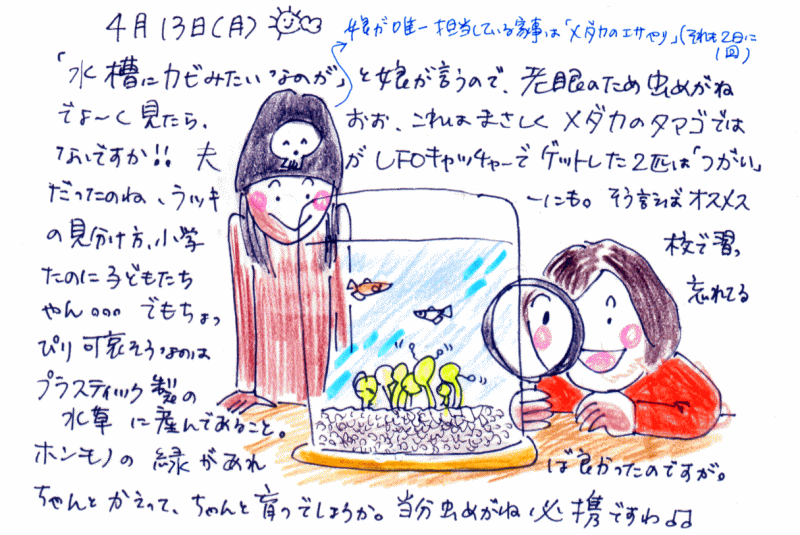 4月13日(月)
娘が唯一担当している家事は「メダカのエサやり」(それも2日に1回)
「水槽にカビみたいなのが」と娘が言うので、老眼のため虫めがね
でよ〜く見たら、おお、これはまさしくメダカのタマゴでは
ないですか!! 夫がUFOキャッチャーでゲットした2匹は「つがい」
だったのね、ラッキーにも。そう言えばオスメス
の見分け方、小学校で習っ
たのに子どもたち忘れてる
やん。。。でもちょっ
ぴり可哀そうなのは
プラスティック製の
水草に産んであること。
ホンモノの緑があれば良かったのですが。
ちゃんとかえって、ちゃんと育つでしょうか。当分虫めがね必携ですわ♪♪